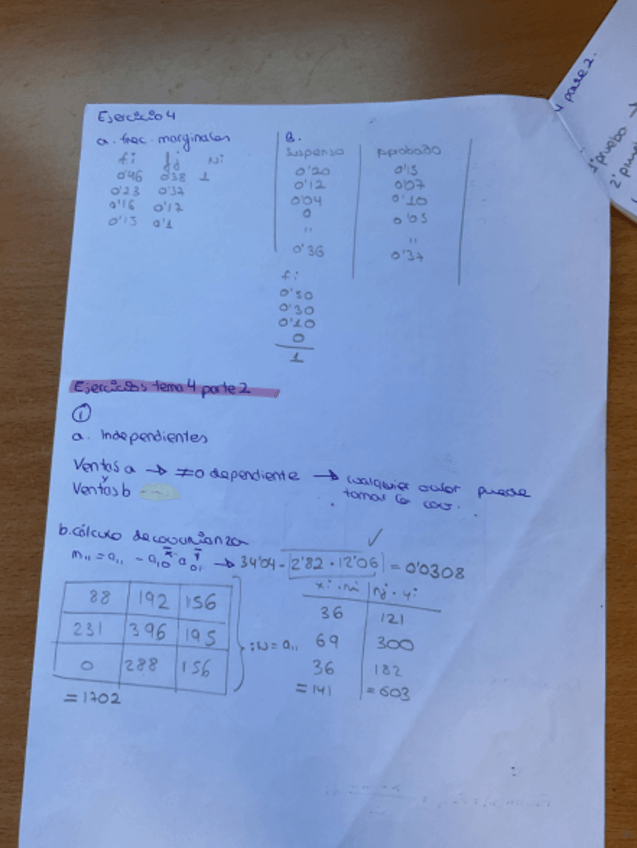 Ejercicio 4
a. frec. marginales
fi fj Ni
0'46 0'38 1
0'23 0'37
0'16 0'17
0'15 0'1
B.
Suspenso Aprobado
0'20 0'15
0'12 0'07
0'04 0'10
0 0'05
" "
0'36 0'37
fi
0'50
0'30
0'10
0
1
Ejercicios tema 4 parte 2
①
a. Independientes
Ventas a → ≠0 dependiente → cualquier valor puede
y
Ventas b
tomar la cov.
b. cálculo de covarianza
m₁₁ = a₁₁ - a₁₀ · a₀₁ → 34'04 - 2'82 · 12'06 = 0'0308
x̄ ȳ
88 192 156
231 396 195
0 288 156
= 1702
: N = a₁₁
xi · ni nj · yi
36 121
69 300
36 182
= 141 = 603
4 parte 2.
1ª prueba →